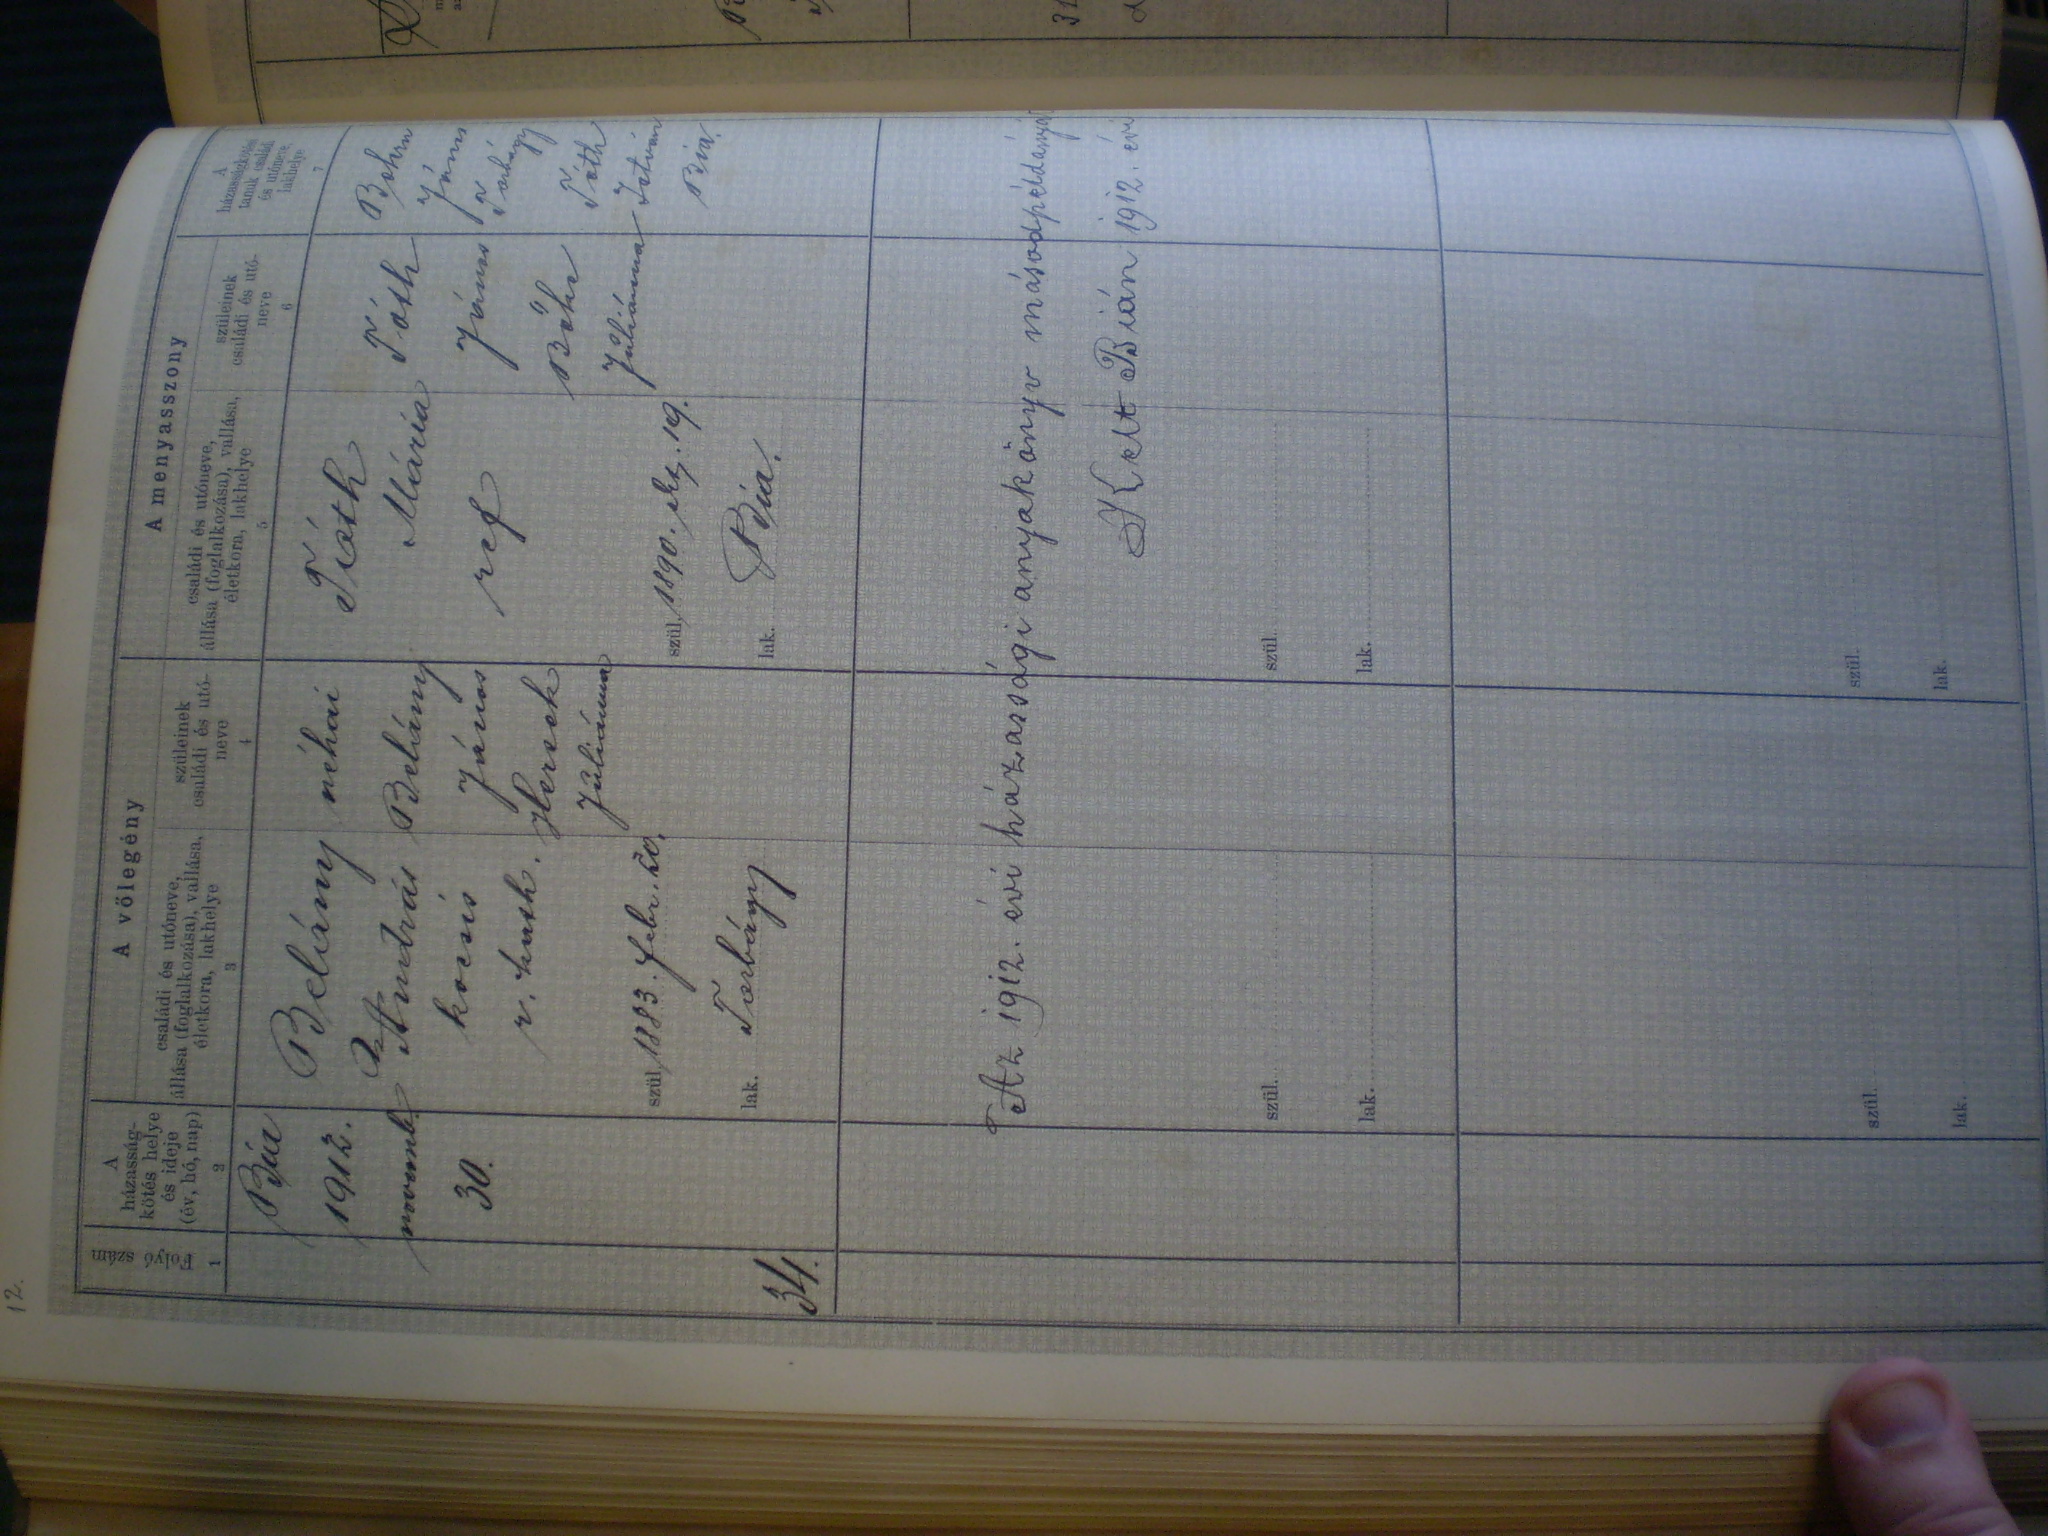 12.
A vőlegény
A menyasszony
Folyó szám
A
házasság-
kötés helye
és ideje
(év, hó, nap)
családi és utóneve,
állása (foglalkozása), vallása,
életkora, lakhelye
szüleinek
családi és utó-
neve
családi és utóneve,
állása (foglalkozása), vallása,
életkora, lakhelye
szüleinek
családi és utó-
neve
A
házasságkötési
tanuk családi
és utóneve,
lakhelye
1
2
3
4
5
6
7
34.
Bia
1912.
novemb.
30.
Belány
András
kocsis
r. kath.
szül. 1883. febr. 20.
lak. Torbágy
néhai
Belány
János
Julianna
Tóth
Mária
ref
szül. 1890. 19.
lak. Bia.
Tóth
János
Bőke
Juliánna
János
Torbágy
Tóth
István
Bia.
Az 1912. évi házassági anyakönyv másodpéldányát
Kelt Bián 1912. évi
szül.
lak.
szül.
lak.
szül.
lak.
szül.
lak.